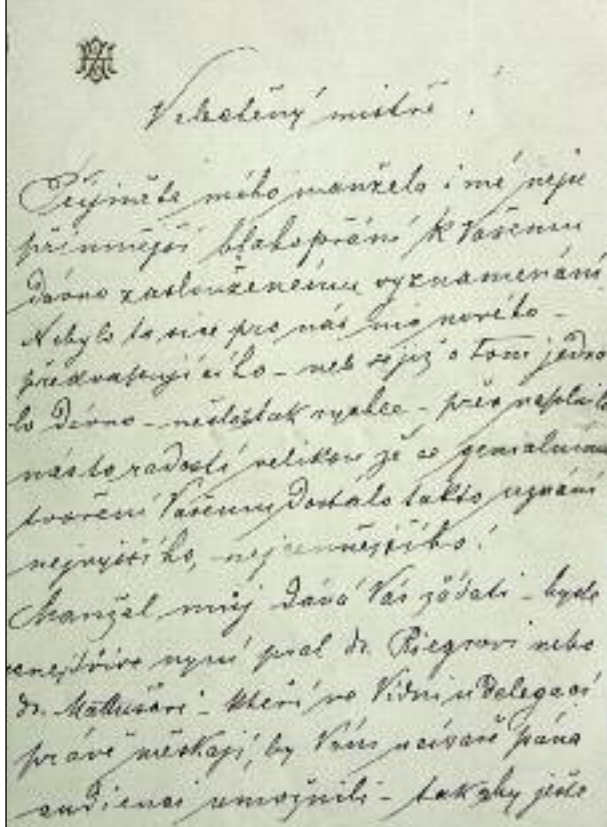 Velectěný mistře!
Přijměte mého manžela i mé neju
přímnější blahopřání k Vašemu
dávno zaslouženému vyznamenání
Nebylo to sice pro nás nic nového –
překvapujícího – neb se již o tom jedna
lo dávno – nešlo tak rychle – přec naplnilo
nás to radostí velikou že se genialnímu
tvoření Vašemu dostalo takto uznání
nejvyššího, nejcennějšího!
Manžel můj dává Vás žádati – byste
nejdříve nyní psal dr. Riegrovi nebo
dr. Mattušovi – kteří ve Vídni v delegaci
právě meškají, by Vám u císaře pána
audienci umožnili – tak aby ještě